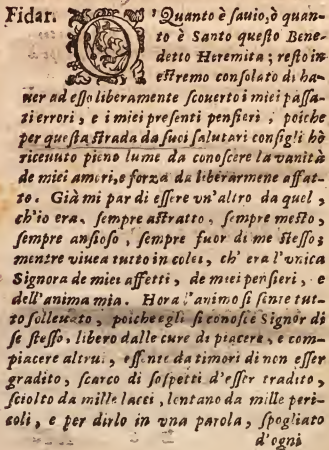 Fidar. O' Quanto è sauio, ò quan-
to è Santo questo Bene-
detto Heremita; resto in
estremo consolato di ha-
uer ad esso liberamente scouerto i miei passa-
ti errori, e i miei presenti pensieri; poiche
per questa strada da suoi salutari consigli hò
riceuuto pieno lume da conoscere la vanità
de miei amori, e forza da liberarmene affat-
to. Già mi par di essere vn'altro da quel,
ch'io era, sempre astratto, sempre mesto,
sempre ansioso, sempre fuor di me stesso;
mentre viuea tutto in colei, ch'era l'vnica
Signora de miei affetti, de miei pensieri, e
dell'anima mia. Hora l'animo si sente tut-
to solleuato, poiche egli si conosce Signor di
se stesso, libero dalle cure di piacere, e com-
piacere altrui, essente da timori di non esser
gradito, scarco di sospetti d'esser tradito,
sciolto da mille lacci, lontano da mille peri-
coli, e per dirlo in vna parola, spogliato
d'ogni